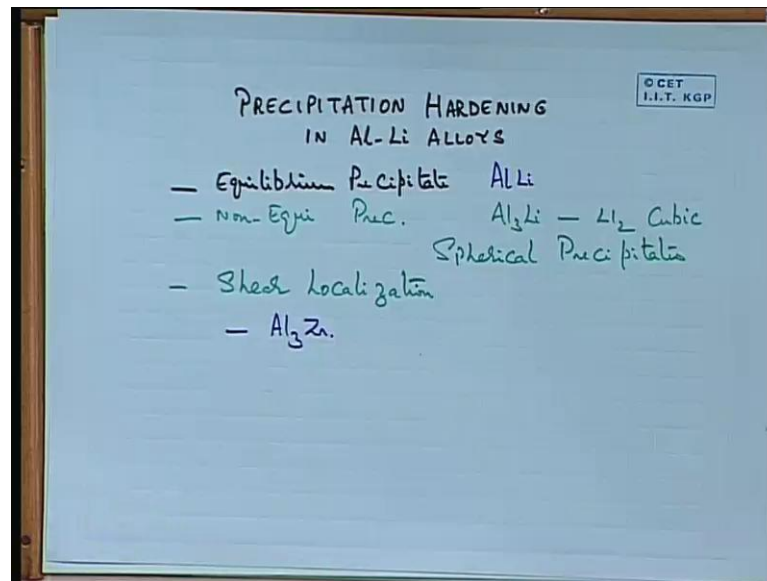 © CET
I.I.T. KGP
PRECIPITATION HARDENING
IN Al-Li ALLOYS
— Equilibrium Precipitate AlLi
— Non-Equi Prec. Al3Li — L12 Cubic
Spherical Precipitates
— Shear Localization
— Al3Zr.